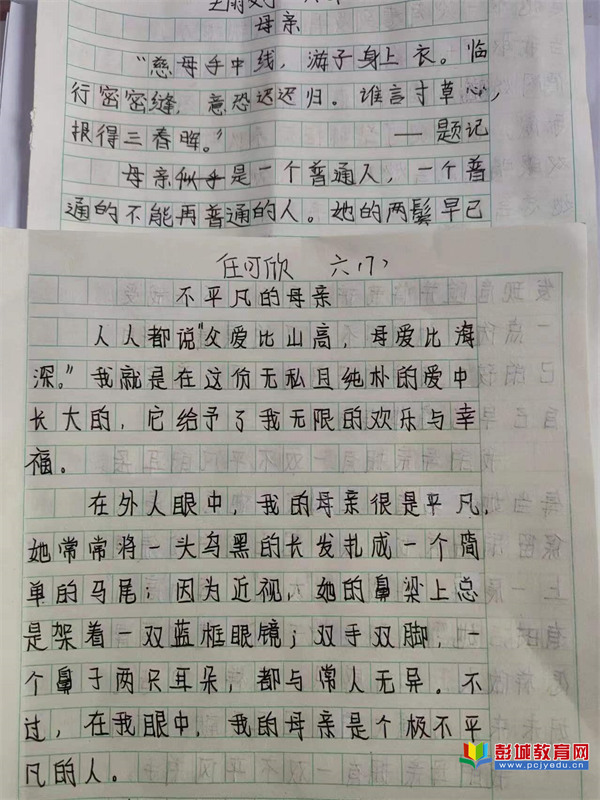 母亲
“慈母手中线，游子身上衣。临
行密密缝，意恐迟迟归。谁言寸草心，
报得三春晖。” ——题记
母亲似乎是一个普通人，一个普
通的不能再普通的人。她的两鬓早已
任可欣 六(7)
不平凡的母亲
人人都说“父爱比山高，母爱比海
深。”我就是在这份无私且纯朴的爱中
长大的，它给予了我无限的欢乐与幸
福。
在外人眼中，我的母亲很是平凡，
她常常将一头乌黑的长发扎成一个简
单的马尾；因为近视，她的鼻梁上总
是架着一双蓝框眼镜；双手双脚，一
个鼻子两只耳朵，都与常人无异。不
过，在我眼中，我的母亲是个极不平
凡的人。
彭城教育网
www.pcjyedu.cn